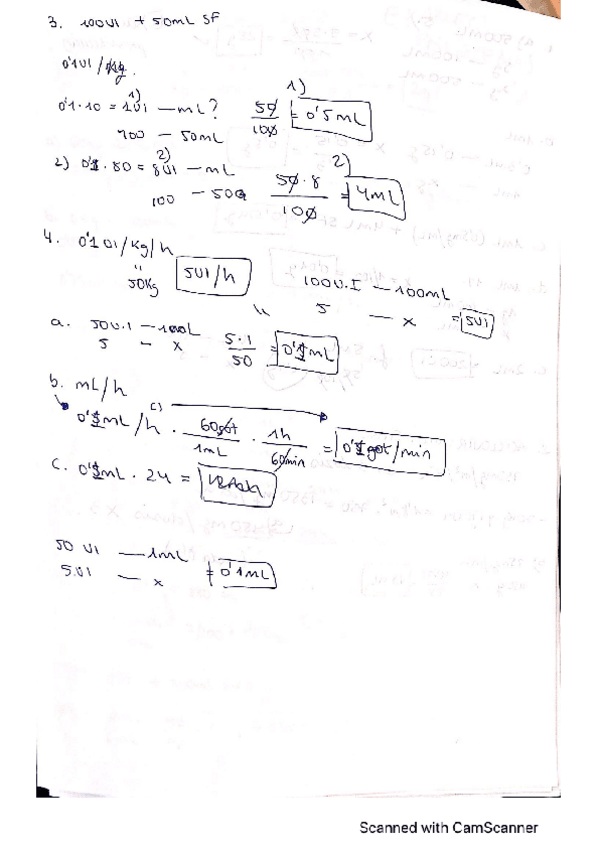 3. 100UI + 50mL SF
0'1UI/Kg.
1)
0'1·10 = 1UI — mL?
100 — 50mL
1)
50/100 = 0'5mL
2)
2) 0'1·80 = 8UI — mL
100 — 50
2)
50·8/100 = 4mL
4. 0'1UI/Kg/h
50Kg
5UI/h
100U.I — 100mL
5 — x = 5UI
a. 50U.I — 1mL
5 — x
5·1/50 = 0'1mL
b. mL/h
c)
0'1mL/h · 60got/1mL · 1h/60min = 0'1got/min
c. 0'1mL · 24 =
50 UI — 1mL
5UI — x = 0'1mL
Scanned with CamScanner